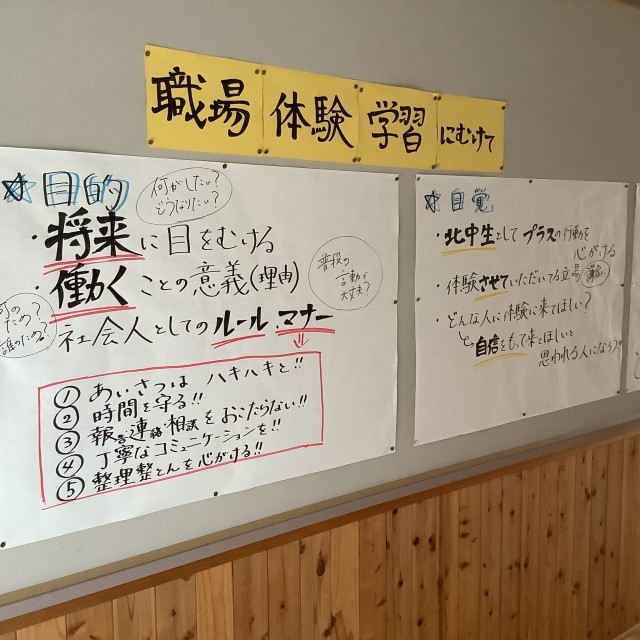 職場体験学習にむけて
☆目的
何がしたい?
どうなりたい?
・将来に目をむける
・働くことの意義(理由)
普段の
言動で
大丈夫?
誰のため?
社会人としてのルール.マナー
① あいさつは ハキハキと!!
② 時間を守る!!
③ 報告連絡相談をおこたらない!!
④ 丁寧なコミュニケーションを!!
⑤ 整理整とんを心がける!!
☆自覚
・北中生として プラスの行動を
心がける
・体験させていただいてる立場
・どんな人に体験に来てほしい?
自信をもって来てほしいと
思われる人になろう